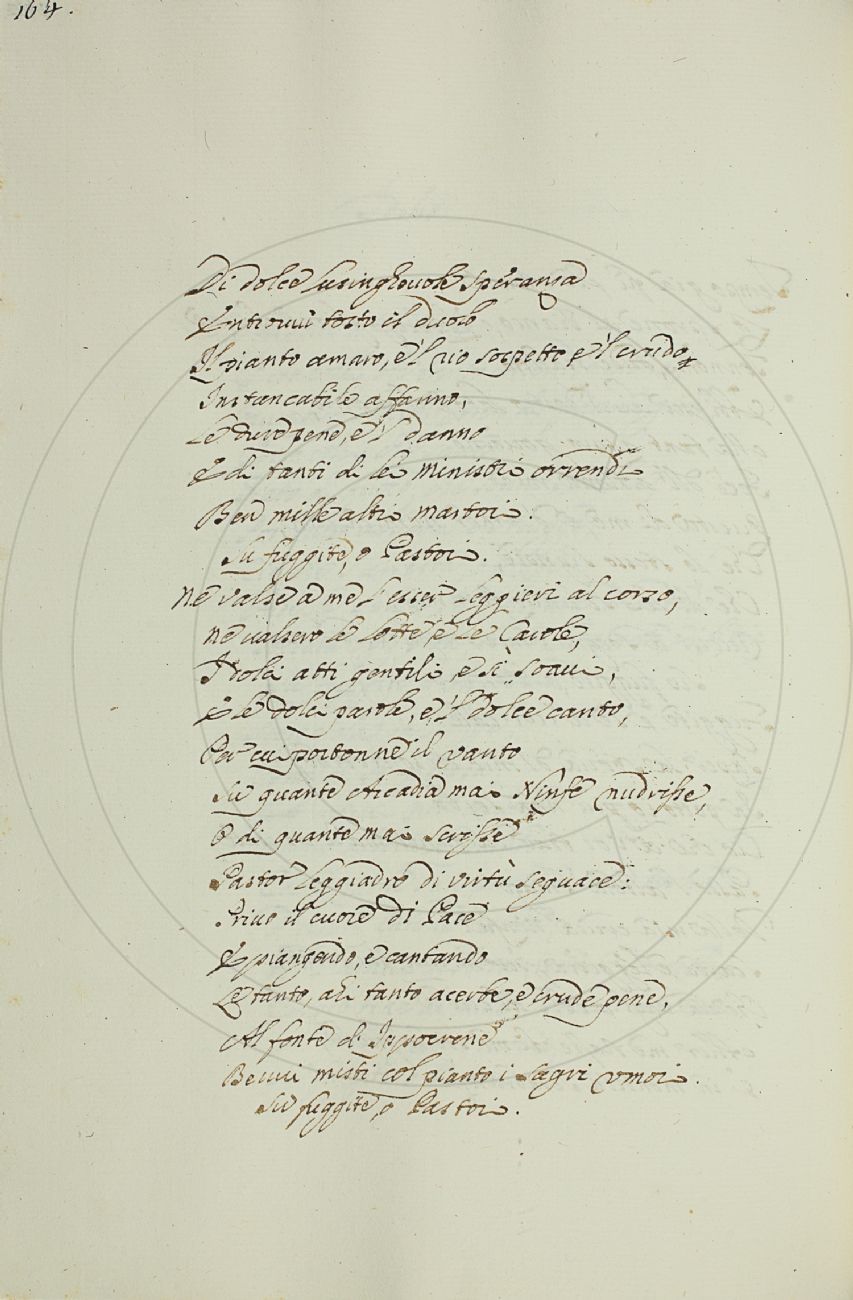 164.
Di dolce lusinghevole speranza
Entrovvi tosto il duolo
Il pianto amaro, e 'l rio sospetto, e 'l crudo
Instancabile affanno,
Le dure pene, e 'l danno
E di tanti di lei ministri orrendi
Ben mille altri martori.
Su fuggite, o Pastori.
Nè valse a me l'esser leggieri al corso,
Nè valsero le lotte, e le Carole,
I dolci atti gentili, e sì soavi,
E le dolci parole, e 'l dolce canto,
Per cui portonne il vanto
Su quante Arcadia mai Ninfe nudrisse,
O di quante mai scrisse
Pastor leggiadro di virtù seguace:
Privo il cuore di Pace
E piangendo, e cantando
Le tanto, ahi tanto acerbe, e crude pene,
Al fonte di Ippocrene
Bevvi misti col pianto i sagri umori.
Su fuggite, o Pastori.